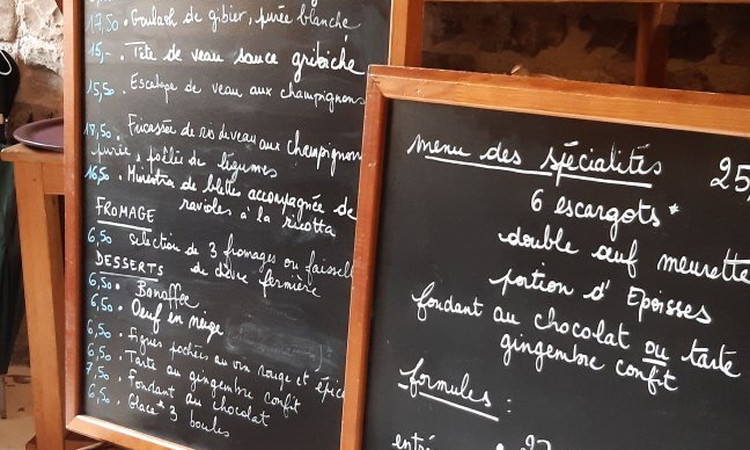 17,50 • Goulash de gibier, purée blanche
15,- • Tête de veau sauce gribiche
15,50 • Escalope de veau aux champignons
18,50 • Fricassée de ris de veau aux champignon
purée, poêlée de légumes
16,50 • Minestra de blettes accompagnée de
ravioles à la ricotta
FROMAGE
6,50 selection de 3 fromages ou faissell
de chèvre fermière
DESSERTS
6,50 • Banoffee
6,50 • Oeuf en neige
6,50 • Figues pochées au vin rouge et épice
6,50 • Tarte au gingembre confit
7,50 • Fondant au chocolat
6,50 • Glace* 3 boules
menu des spécialités 25
6 escargots*
double œuf meurette
portion d' Epoisses
fondant au chocolat ou tarte
gingembre confit
formules :
entré